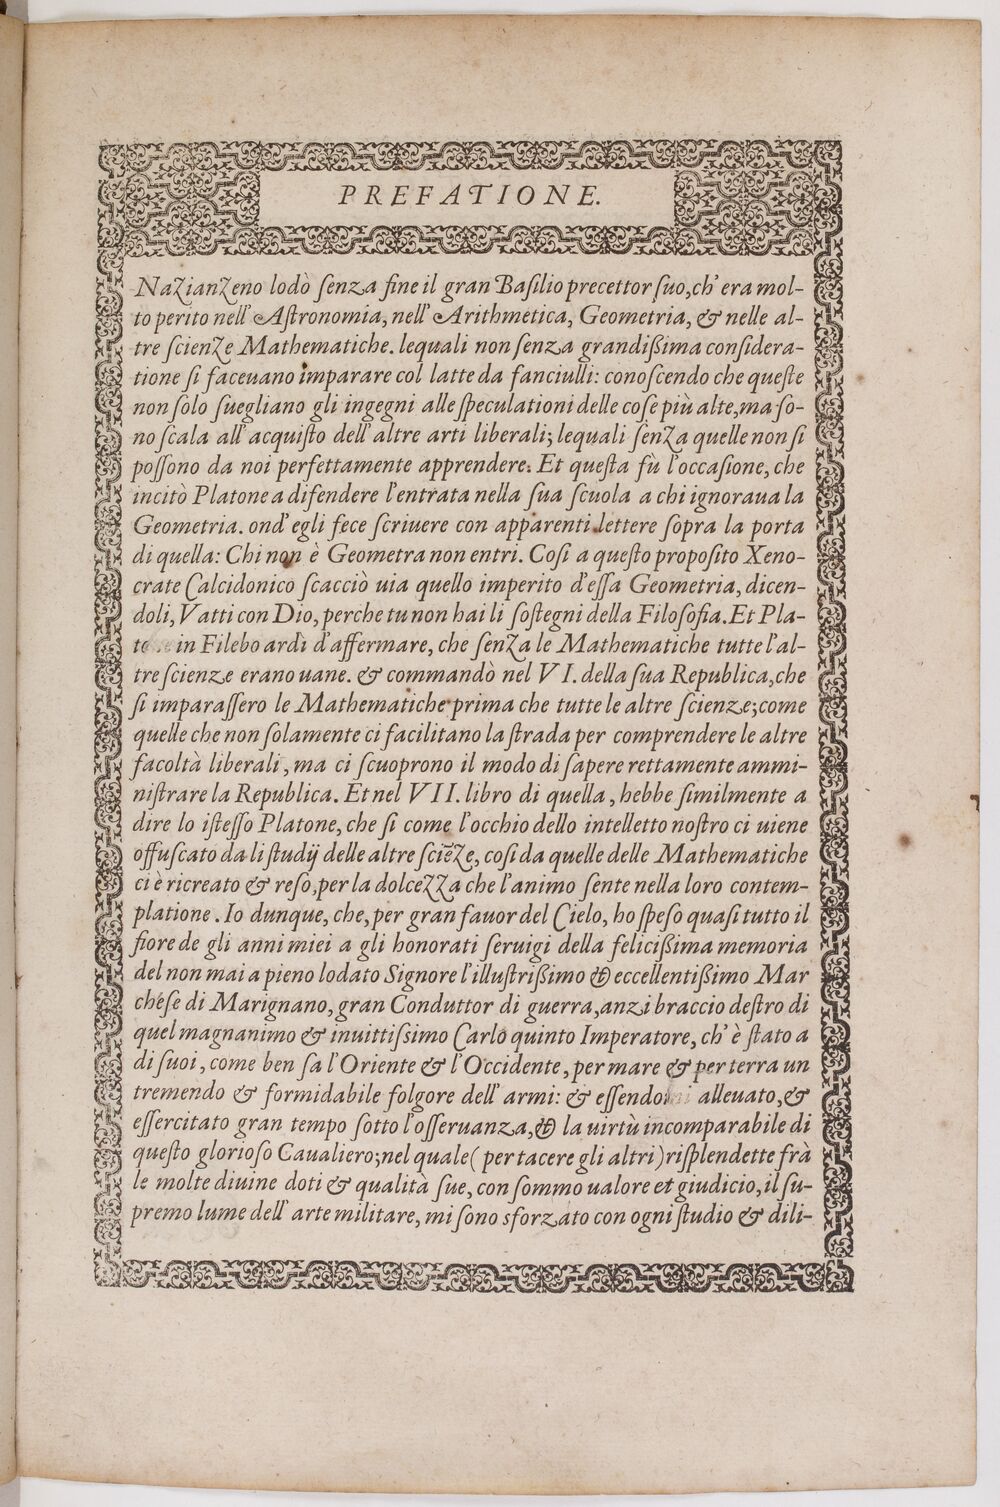 PREFATIONE.
Nazianzeno lodò senza fine il gran Basilio precettor suo, ch' era mol-
to perito nell' Astronomia, nell' Arithmetica, Geometria, & nelle al-
tre scienze Mathematiche. lequali non senza grandißima considera-
tione si faceuano imparare col latte da fanciulli: conoscendo che queste
non solo suegliano gli ingegni alle speculationi delle cose più alte, ma so-
no scala all' acquisto dell' altre arti liberali; lequali senza quelle non si
possono da noi perfettamente apprendere. Et questa fù l'occasione, che
incitò Platone a difendere l'entrata nella sua scuola a chi ignoraua la
Geometria. ond' egli fece scriuere con apparenti lettere sopra la porta
di quella: Chi non è Geometra non entri. Così a questo proposito Xeno-
crate Calcidonico scacciò uia quello imperito d'essa Geometria, dicen-
doli, Vatti con Dio, perche tu non hai li sostegni della Filosofia. Et Pla-
in Filebo ardì d'affermare, che senza le Mathematiche tutte l'al-
tre scienze erano uane. & commandò nel VI. della sua Republica, che
si imparassero le Mathematiche prima che tutte le altre scienze; come
quelle che non solamente ci facilitano la strada per comprendere le altre
facoltà liberali, ma ci scuoprono il modo di sapere rettamente ammi-
nistrare la Republica. Et nel VII. libro di quella, hebbe similmente a
dire lo istesso Platone, che si come l'occhio dello intelletto nostro ci uiene
offuscato da li studij delle altre sciēze, cosi da quelle delle Mathematiche
ci è ricreato & reso, per la dolcezza che l'animo sente nella loro contem-
platione. Io dunque, che, per gran fauor del Cielo, ho speso quasi tutto il
fiore de gli anni miei a gli honorati seruigi della felicißima memoria
del non mai a pieno lodato Signore l'illustrißimo & eccellentißimo Mar
chese di Marignano, gran Conduttor di guerra, anzi braccio destro di
quel magnanimo & inuittissimo Carlo quinto Imperatore, ch' è stato a
di suoi, come ben sa l'Oriente & l'Occidente, per mare & per terra un
tremendo & formidabile folgore dell' armi: & essendomi alleuato, &
essercitato gran tempo sotto l'osseruanza, & la uirtù incomparabile di
questo glorioso Caualiero; nel quale (per tacere gli altri) risplendette frà
le molte diuine doti & qualità sue, con sommo ualore et giudicio, il su-
premo lume dell' arte militare, mi sono sforzato con ogni studio & dili-